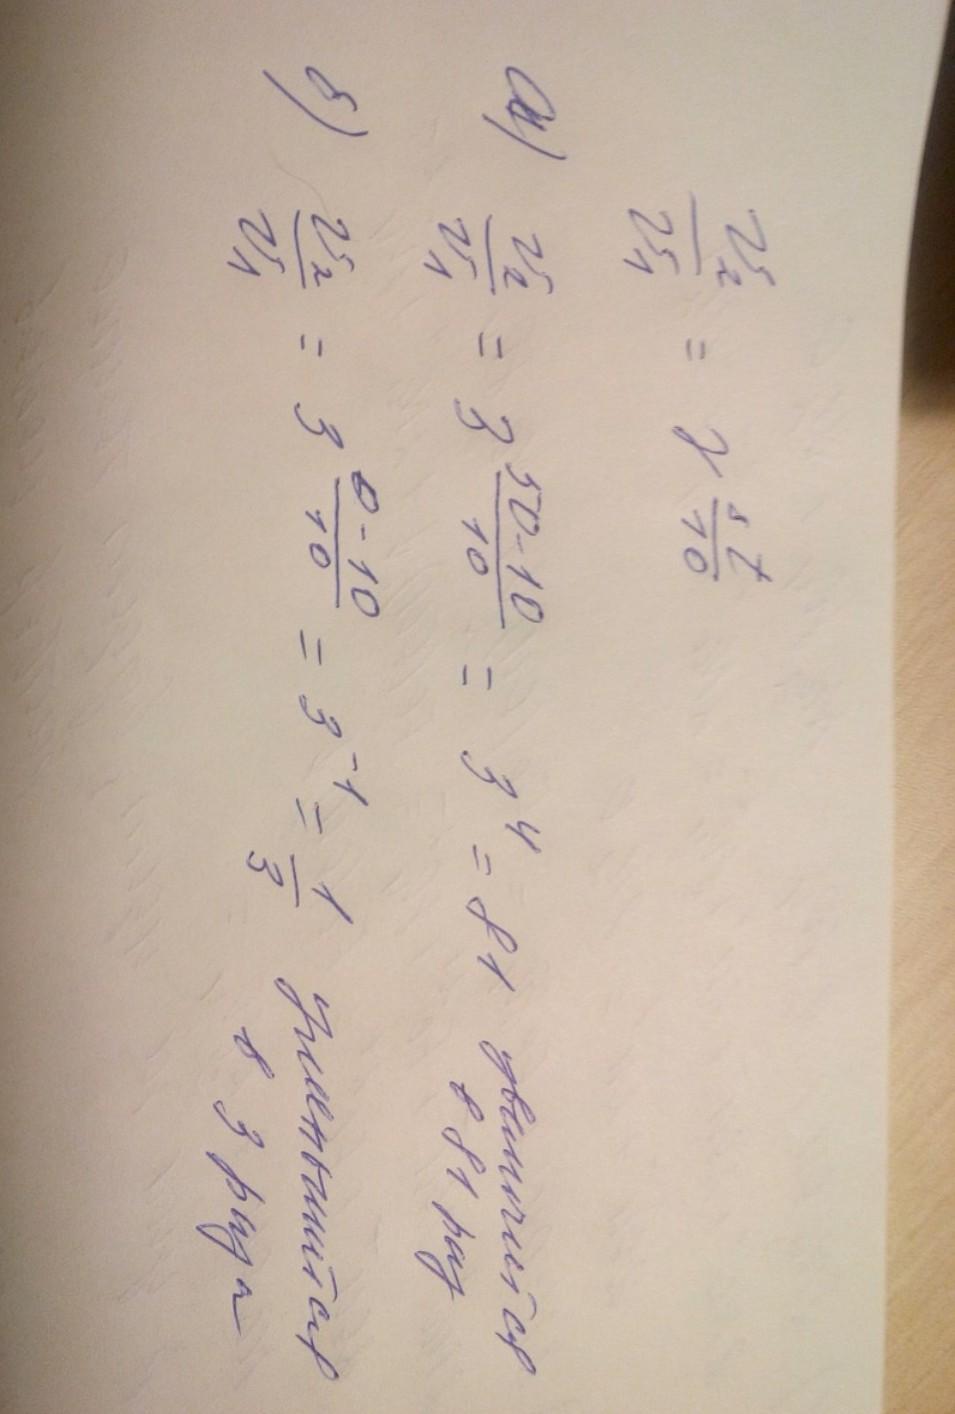 v₂/v₁ = γ^(Δt/10)
а) v₂/v₁ = 3^((50-10)/10) = 3⁴ = 81 увеличится
в 81 раз
б) v₂/v₁ = 3^((0-10)/10) = 3⁻¹ = 1/3 Уменьшится
в 3 раза